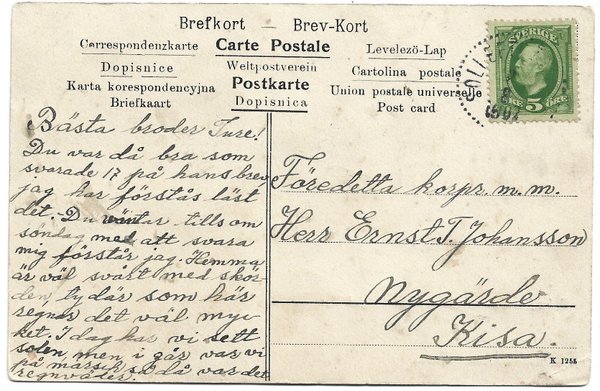 Brefkort — Brev-Kort
Correspondenzkarte Carte Postale Levelezö-Lap
Dopisnice Weltpostverein Cartolina postale
Karta korespondencyjna Postkarte Union postale universelle
Briefkaart Dopisnica Post card
SVERIGE
ÖRE 5 ÖRE
Bästa broder Ture!
Du var då bra som
svarade 17 på hans brev
jag har förstås läst
det. Du väntar tills om
söndag med att svara
mig förstår jag. Hemma
är väl svårt med skör-
den, ty där som här
regnar det väl myc-
ket. I dag har vi sett
solen, men i går var vi
på marsch så då var det
regnväder.
Föredetta korpr. m. m.
Herr Ernst T. Johansson
Nygärde
Kisa.
K 1255